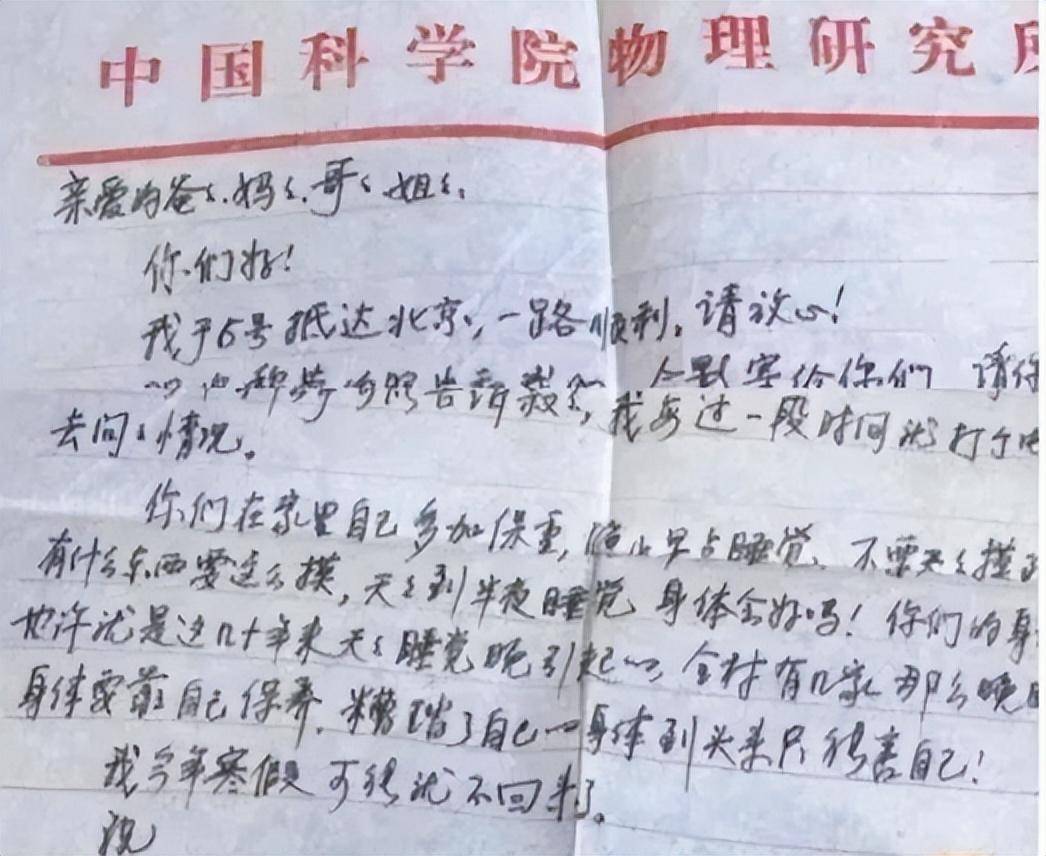 中国科学院物理研究所
亲爱的爸々.妈々.哥々.姐々:
你们好!
我于6号抵达北京,一路顺利。请放心!
告诉叔々,我每过一段时间就打个电
去问々情况。
你们在家里自己多加保重,晚上早点睡觉、不要天々摸
有什么东西要这么摸,天々到半夜睡觉,身体会好吗!你们的身
也许就是这几十年来天々睡觉晚引起的,全村有几家那么晚
身体要靠自己保养.糟蹋了自己的身体到头来只能害自己!
我今年寒假可能就不回来了。
祝